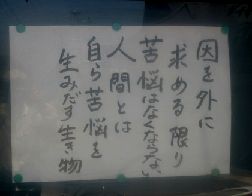 因を外に
求める限り
苦悩はなくならない、
人間とは
自ら苦悩を
生みだす生き物